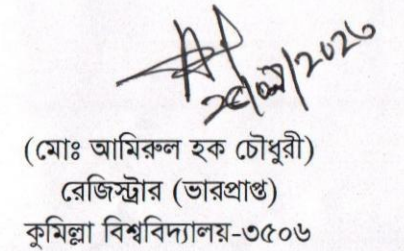 (মোঃ আমিরুল হক চৌধুরী)
রেজিস্ট্রার (ভারপ্রাপ্ত)
কুমিল্লা বিশ্ববিদ্যালয়-৩৫০৬